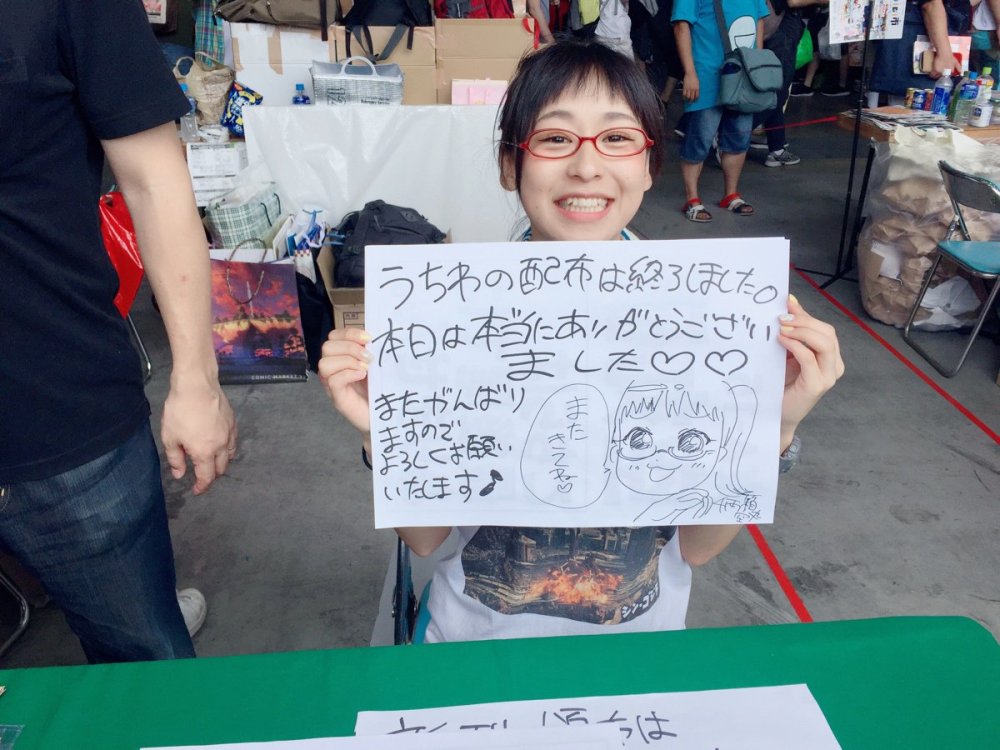 うちわの配布は終了しました。
本日は本当にありがとうござい
ました♡♡
またがんばり
ますので
よろしくお願い
いたします♪
また
きてね♡
シン・ゴジ
COMIC MARKET